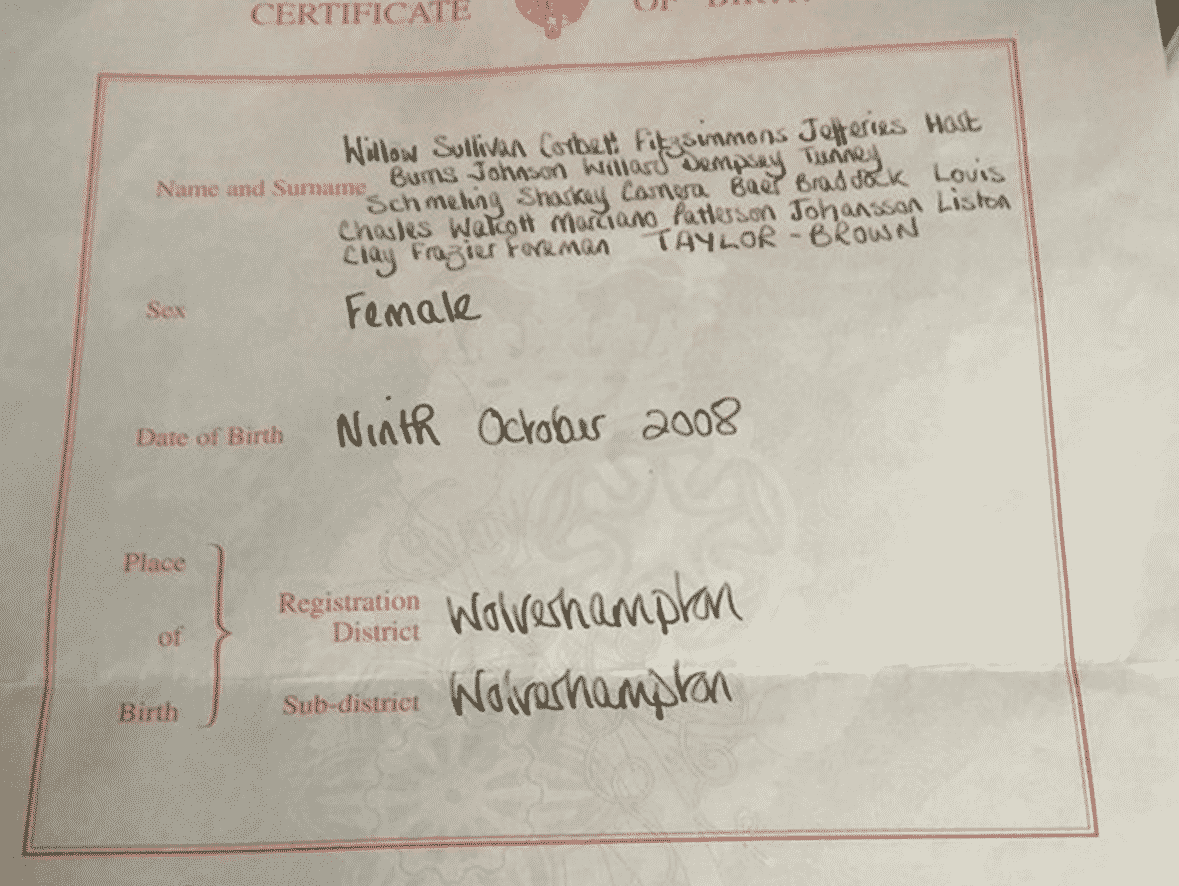 CERTIFICATE OF BIRTH
Willow Sullivan Corbett Fitzsimmons Jefferies Hart
Burns Johnson Willard Dempsey Tunney
Name and Surname
Schmeling Sharkey Carnera Baer Braddock Louis
Charles Walcott Marciano Patterson Johansson Liston
Clay Frazier Foreman TAYLOR-BROWN
Sex Female
Date of Birth Ninth October 2008
Place
of
Birth
Registration
District Wolverhampton
Sub-district Wolverhampton